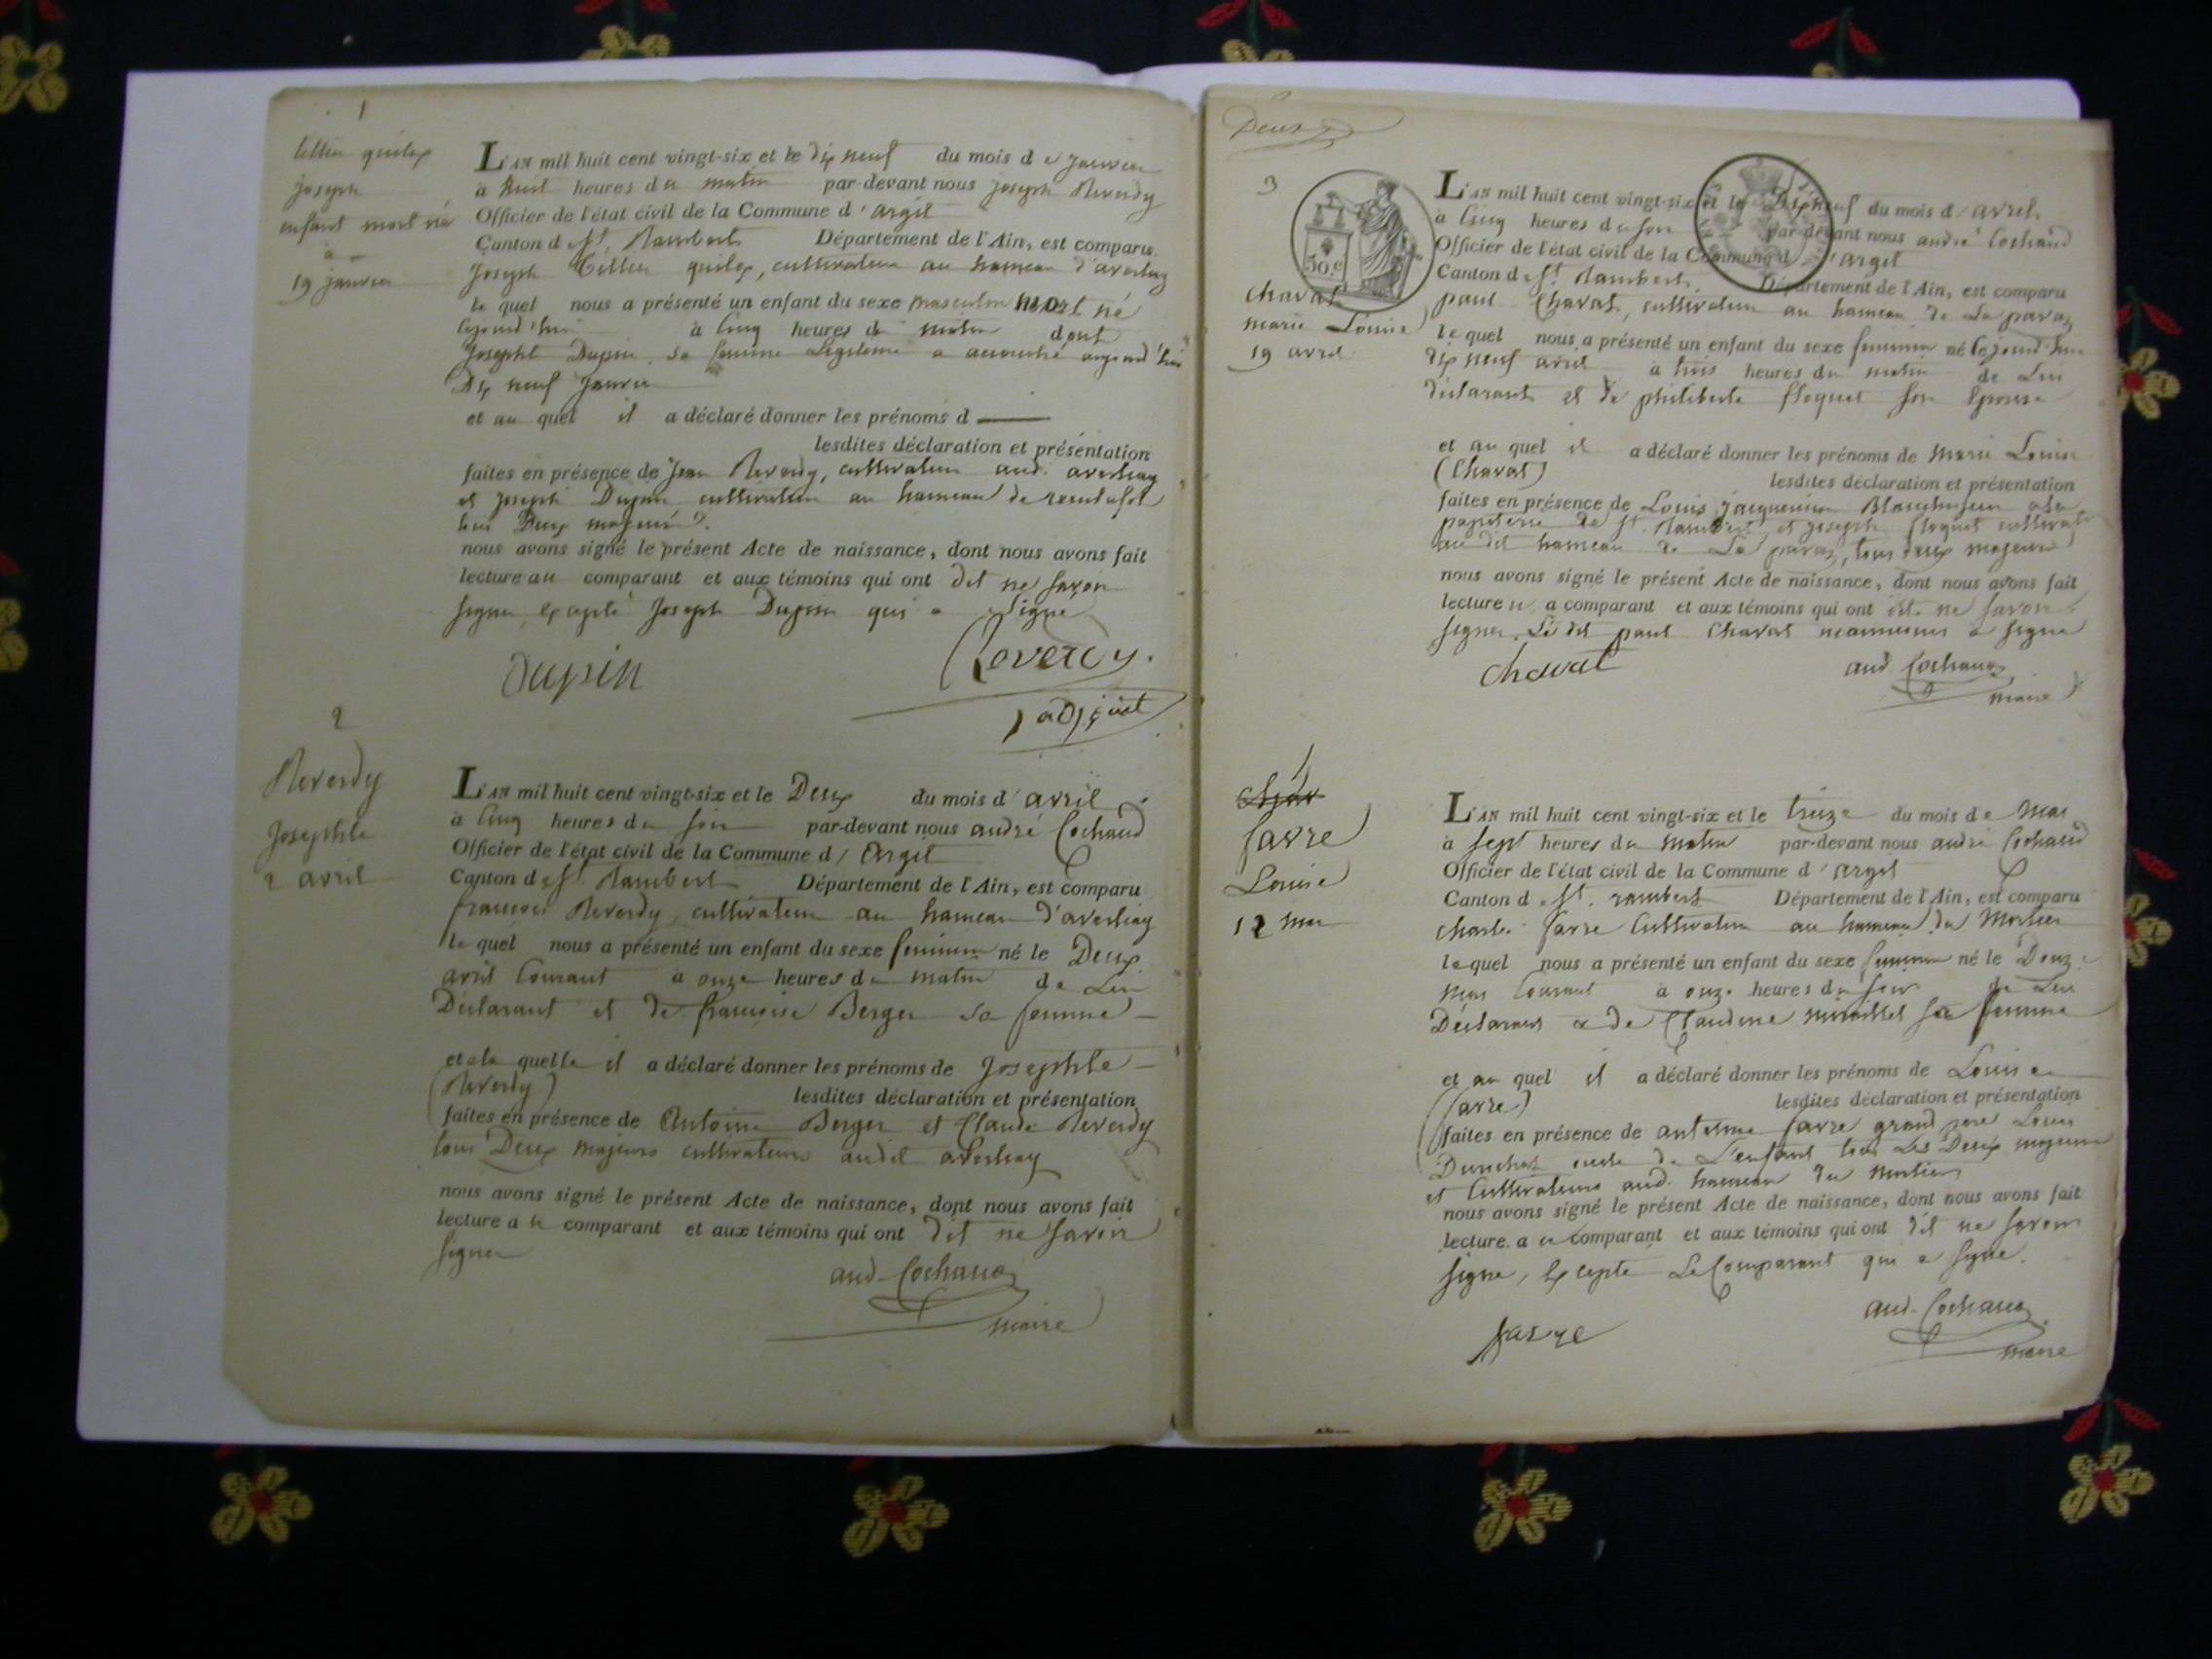 1
joseph
enfant mort né
19 janvier
L'AN mil huit cent vingt-six et le dix neuf du mois de janvier
à huit heures du matin par-devant nous joseph Reverdy
Officier de l'état civil de la Commune d'argit
Canton de St. Rambert Département de l'Ain, est comparu
joseph quilex, cultivateur au hameau d'averliaz
le quel nous a présenté un enfant du sexe masculin mort né
cejourd'hui à cinq heures du matin dont
Josephte Dupin sa femme Légitime a accouché aujourd'hui
Dix neuf janvier
et au quel il a déclaré donner les prénoms d
lesdites déclaration et présentation
faites en présence de jean Reverdy, cultivateur aud. averliaz
et joseph Dupin cultivateur au hameau de
tous Deux majeurs
nous avons signé le présent Acte de naissance, dont nous avons fait
lecture au comparant et aux témoins qui ont dit ne savoir
signer, excepté joseph Dupin qui a signé
Dupin
Reverdy.
adjoint
2
Reverdy
Josephte
2 avril
L'AN mil huit cent vingt-six et le Deux du mois d'avril
à cinq heures du soir par-devant nous andré Cochaud
Officier de l'état civil de la Commune d'Argit
Canton de St. Rambert Département de l'Ain, est comparu
françois Reverdy, cultivateur au hameau d'averliaz
le quel nous a présenté un enfant du sexe feminin né le Deux
avril Courant à onze heures du matin de Lui
Déclarant et de françoise Berger sa femme
et a la quelle il a déclaré donner les prénoms de Josephte
(Reverdy)
lesdites déclaration et présentation
faites en présence de Antoine Berger et Claude Reverdy
tous Deux majeurs cultivateurs audit averliaz
nous avons signé le présent Acte de naissance, dont nous avons fait
lecture au comparant et aux témoins qui ont dit ne savoir
signer
and Cochaud
maire
Deux
3
50.c
Chavat
marie Louise
19 avril
L'AN mil huit cent vingt-six et le Dix neuf du mois d'avril
à cinq heures du soir par-devant nous andré Cochaud
Officier de l'état civil de la Commune d'argit
Canton de St. Rambert. Département de l'Ain, est comparu
paul Chavat, cultivateur au hameau de La paraz
le quel nous a présenté un enfant du sexe feminin né cejourd'hui
dix neuf avril à trois heures du matin de Lui
déclarant et de philiberte floquet son Epouse
et au quel il a déclaré donner les prénoms de marie Louise
(Chavat)
lesdites déclaration et présentation
faites en présence de Louis jacquemin Blanchisseur a la
papeterie de St. Rambert et joseph floquet cultivat
au dit hameau de La paraz, tous deux majeurs
nous avons signé le présent Acte de naissance, dont nous avons fait
lecture au comparant et aux témoins qui ont dit ne savoir
signer. Le dit paul Chavat a signé
Chavat
and Cochaud
maire
4
favre
Louise
12 mai
L'AN mil huit cent vingt-six et le treize du mois de mai
à sept heures du matin par-devant nous andré Cochaud
Officier de l'état civil de la Commune d'argit
Canton de St. rambert Département de l'Ain, est comparu
Charles favre Cultivateur au hameau du Mortier
le quel nous a présenté un enfant du sexe feminin né le Douze
mai Courant à onze heures du soir de Lui
Déclarant et de Claudine sa femme
et au quel il a déclaré donner les prénoms de Louise
(favre)
lesdites déclaration et présentation
faites en présence de anthelme favre grand pere Louis
oncle de L'enfant tous Les Deux majeurs
et Cultivateurs aud. hameau du mortier
nous avons signé le présent Acte de naissance, dont nous avons fait
lecture au comparant et aux témoins qui ont dit ne savoir
signe, Excepté Le Comparant qui a signé.
favre
and Cochaud
maire